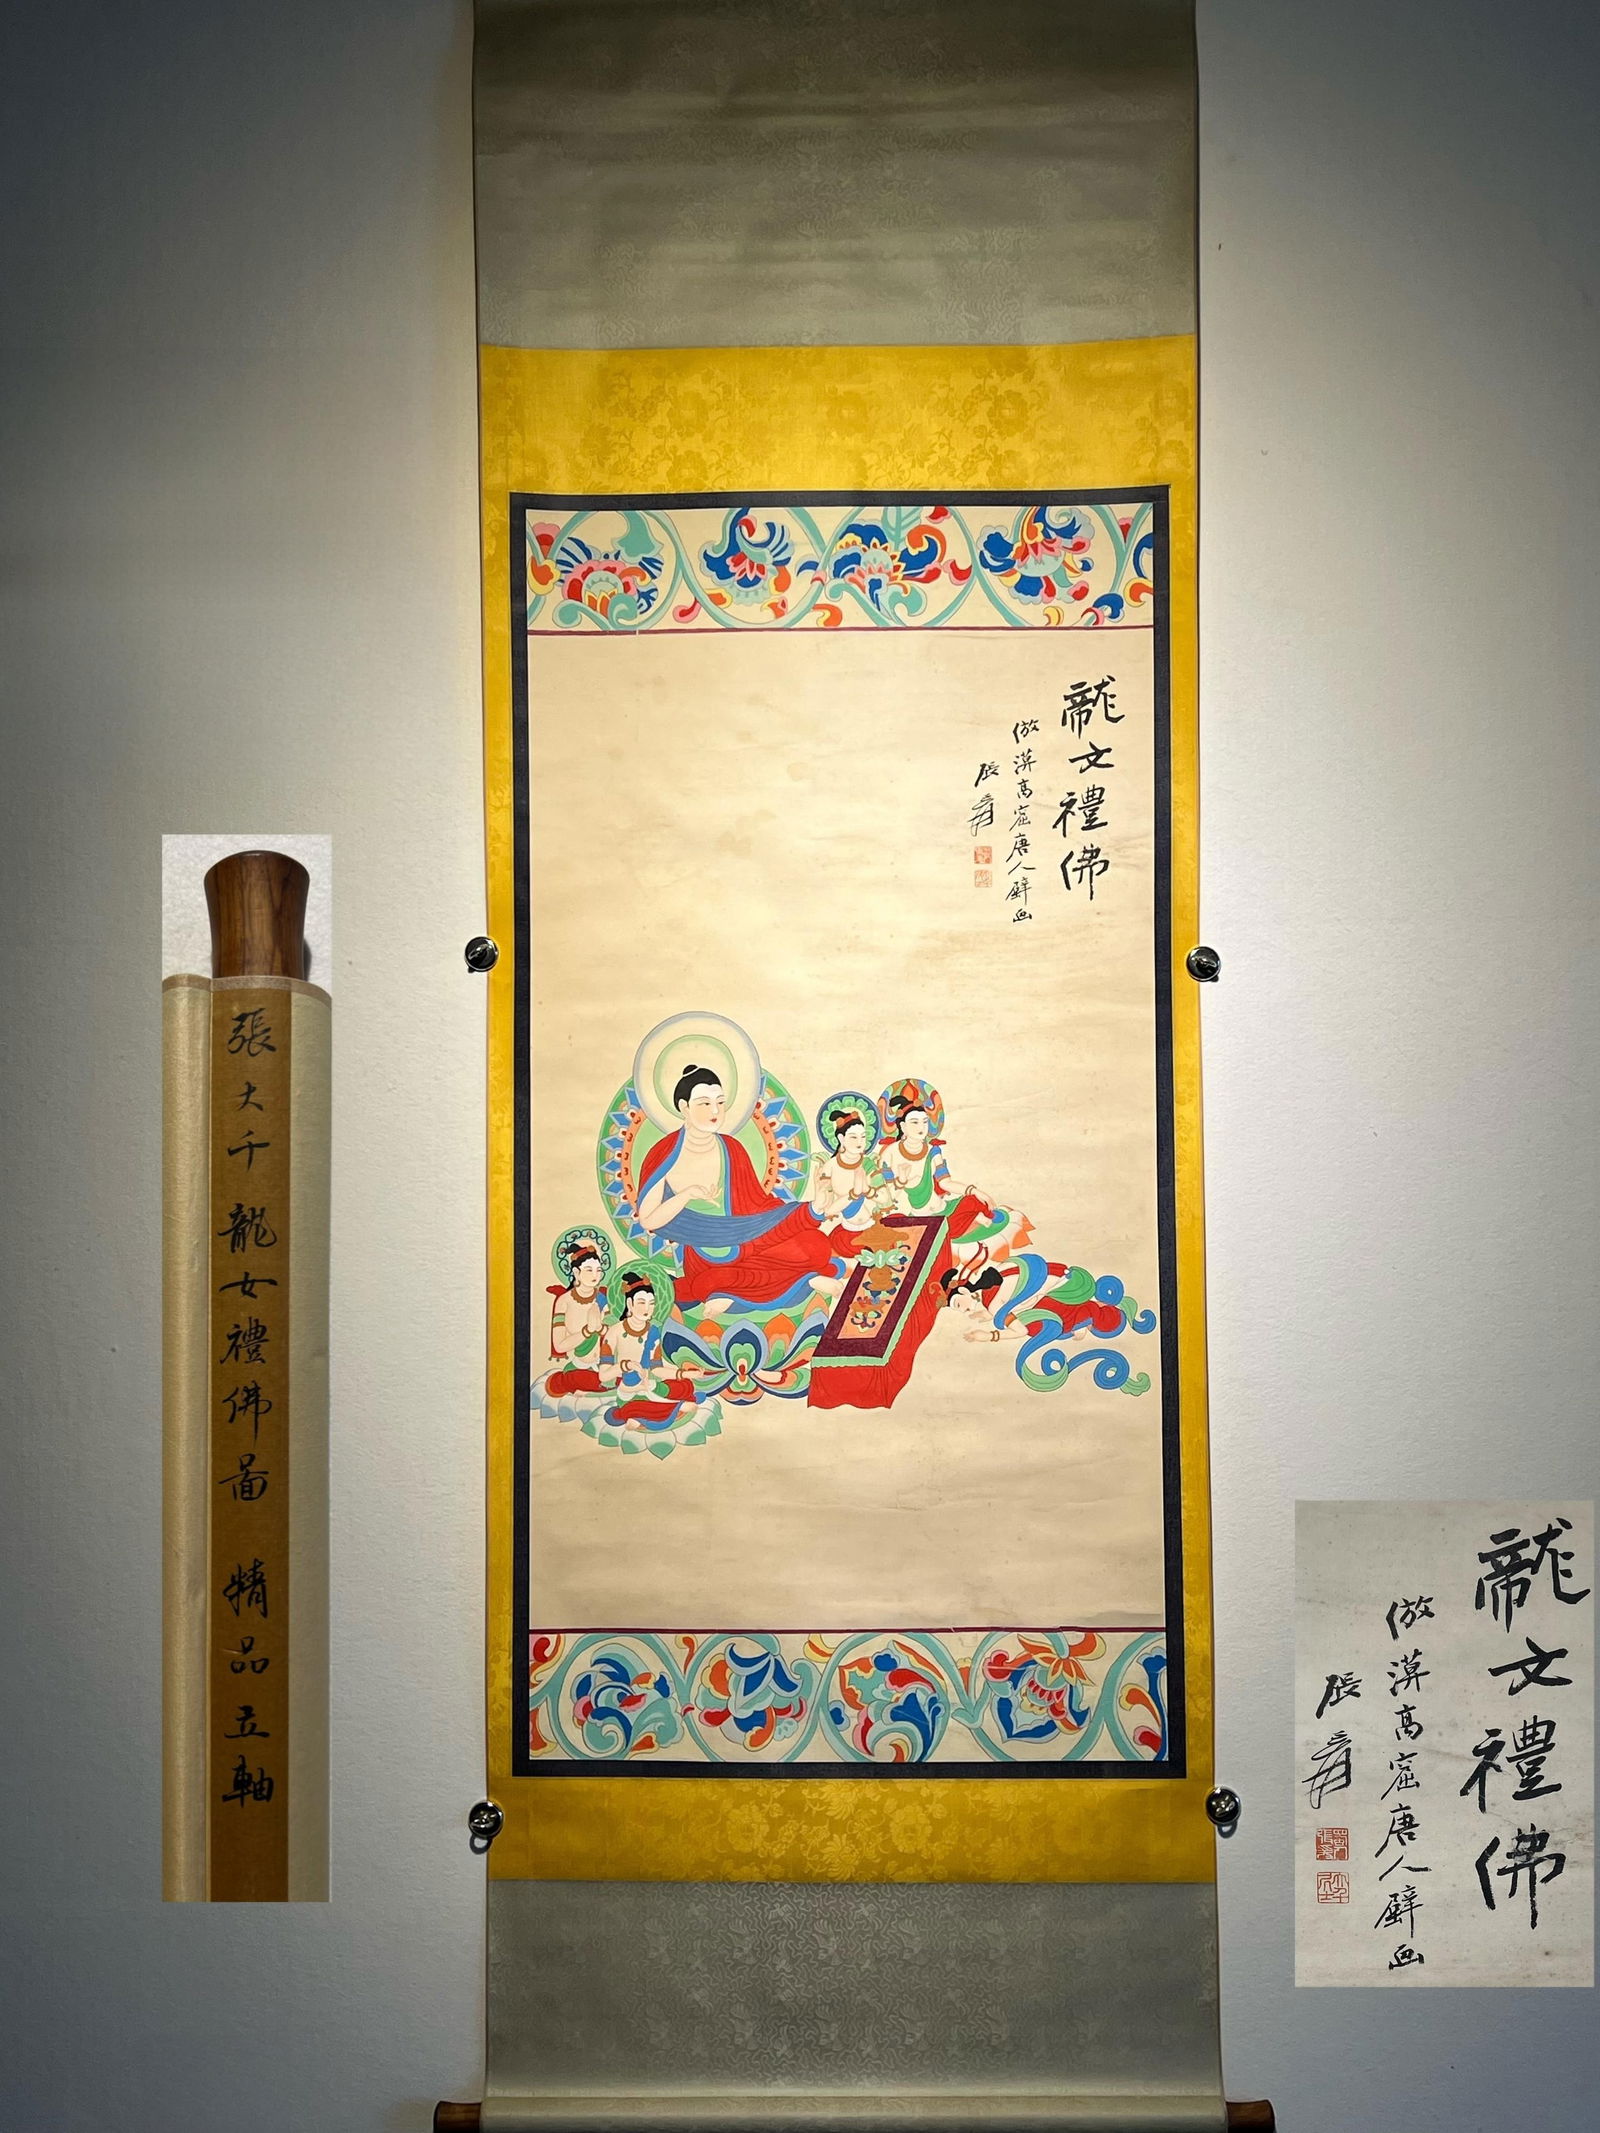 龍文禮佛
倣漠高窟唐人壁画
張爰
張大千龍女禮佛圖 精品立軸
龍文禮佛
倣漠高窟唐人壁画
張爰